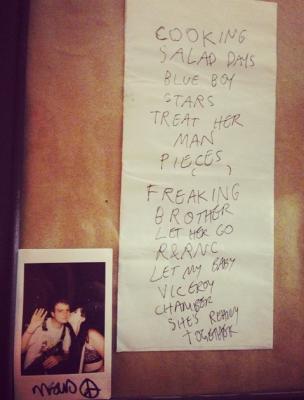 COOKING
SALAD DAYS
BLUE BOY
STARS
TREAT HER
MAN
PIECES
( )
FREAKING
BROTHER
LET HER GO
R&RNC
LET MY BABY
VICEROY
CHAMBER
SHE'S REALLY
TOGETHER